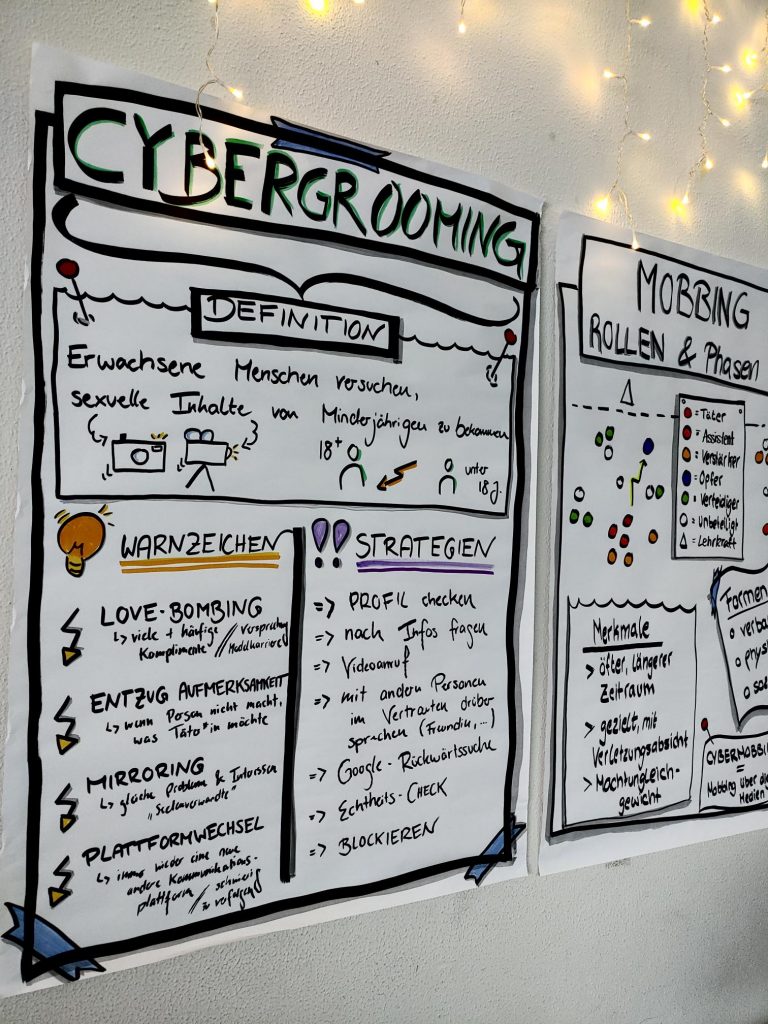 CYBERGROOMING
DEFINITION
Erwachsene Menschen versuchen,
sexuelle Inhalte von Minderjährigen zu bekommen
18+
unter
18 J.
WARNZEICHEN
LOVE-BOMBING
↳ viele + häufige
Komplimente // Versprechung
Modelkarriere
ENTZUG AUFMERKSAMKEIT
↳ wenn Person nicht macht,
was Täter*in möchte
MIRRORING
↳ gleiche Probleme & Interessen
"Seelenverwandte"
PLATTFORMWECHSEL
↳ immer wieder eine neue
andere Kommunikations-
plattform // schwierig
zu verfolgen
!! STRATEGIEN
=> PROFIL checken
=> nach Infos fragen
=> Videoanruf
=> mit andern Personen
im Vertrauten drüber
sprechen (Freundin,...)
=> Google-Rückwärtssuche
=> Echtheits-CHECK
=> BLOCKIEREN
MOBBING
ROLLEN & Phasen
= Täter
= Assistent
= Verstärker
= Opfer
= Verteidiger
= unbeteiligt
= Lehrkraft
Merkmale
> öfter, längerer
Zeitraum
> gezielt, mit
Verletzungsabsicht
> Machtungleich-
gewicht
Formen
verba
phys
so
CYBERMOBBIN
=
Mobbing über di
Medien